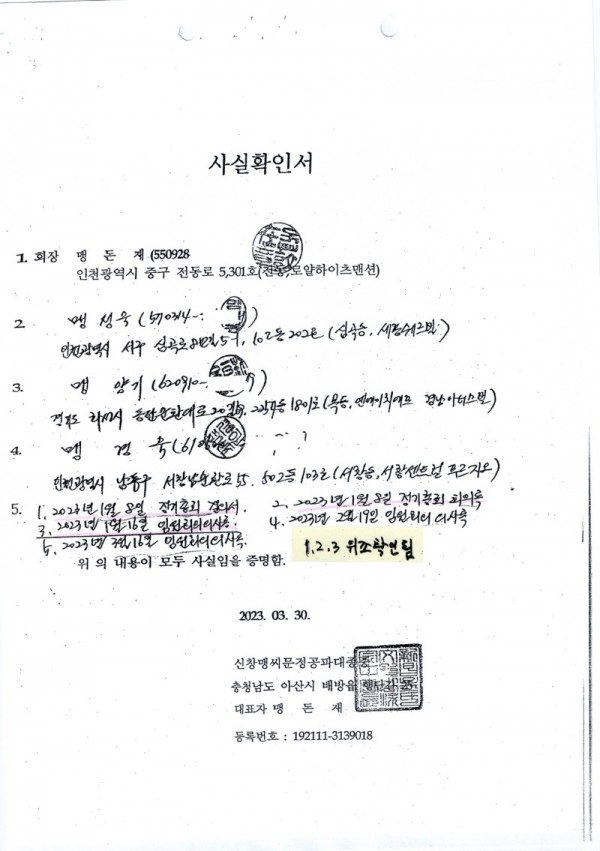 사실확인서
1. 회장 맹 돈 재 (550928
인천광역시 중구 전동로 5,301호(전동,로얄하이츠맨션)
2. 맹 정 욱 (570314-
인천광역시 서구 심곡로 5-1, 102동 202호 (심곡동,
3. 맹 양 기 (620910-
경기도 화성시 동탄순환대로 20길 1801호 (목동,
4. 맹 경 욱 (61
인천광역시 남동구 서창남순환로 55. 502동 103호 (서창동, 서창센트럴 푸르지오)
5. 1. 2023년 1월 8일 정기총회 결의서. 2. 2023년 1월 8일 정기총회 회의록
3. 2023년 1월 16일 임원회의의사록. 4. 2023년 2월 17일 임원회의 의사록
5. 2023년 3월 16일 임원회의의사록.
1.2.3 위조확인됨
위 의 내용이 모두 사실임을 증명함.
2023. 03. 30.
신창맹씨문정공파대종중
충청남도 아산시 배방읍
대표자 맹 돈 재
등록번호 : 192111-3139018